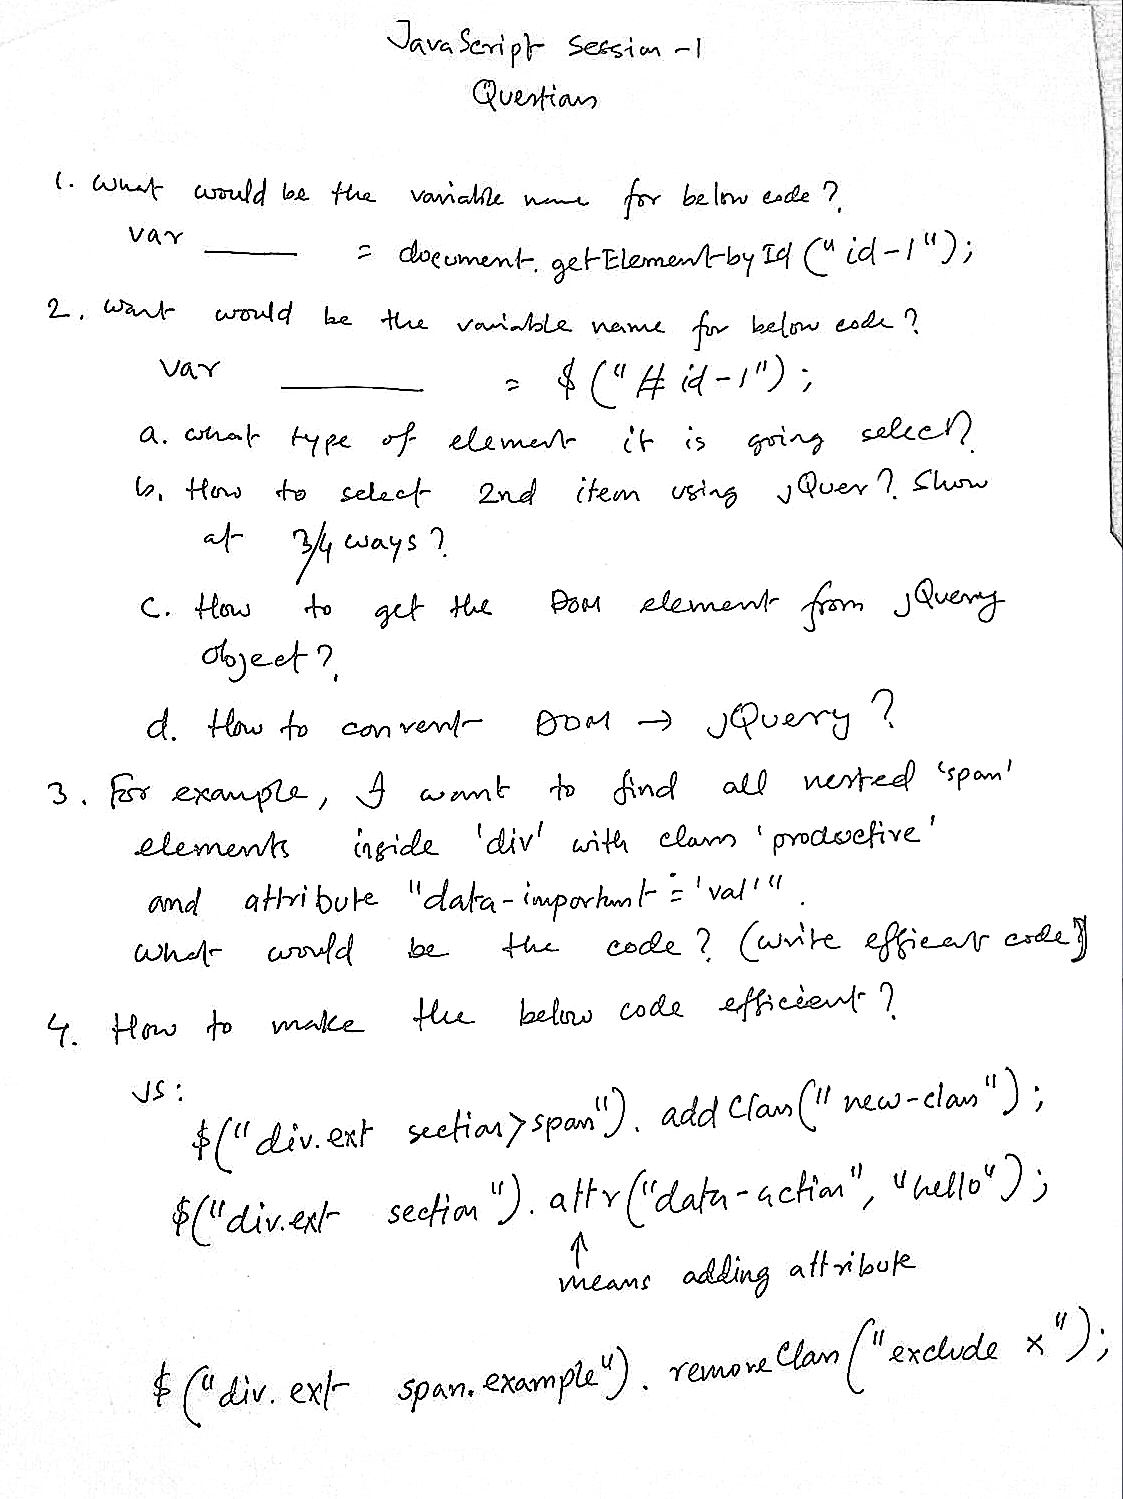 JavaScript session -1
Questions
1. What would be the variable name for below code?
var ____ = document.getElementbyId("id-1");
2. What would be the variable name for below code?
var ____ = $("#id-1");
a. what type of element it is going select?
b. How to select 2nd item using jQuer? Show
at 3/4 ways?
c. How to get the DOM element from jQuery
object?
d. How to convert DOM → jQuery?
3. For example, I want to find all nested 'span'
elements inside 'div' with class 'productive'
and attribute "data-important='val'".
what would be the code? (write efficeat code)
4. How to make the below code efficient?
JS:
$("div.ext section>span").addClass("new-class");
$("div.ext section").attr("data-action", "hello");
↑
means adding attribute
$("div.ext span.example").removeClass("exclude x");